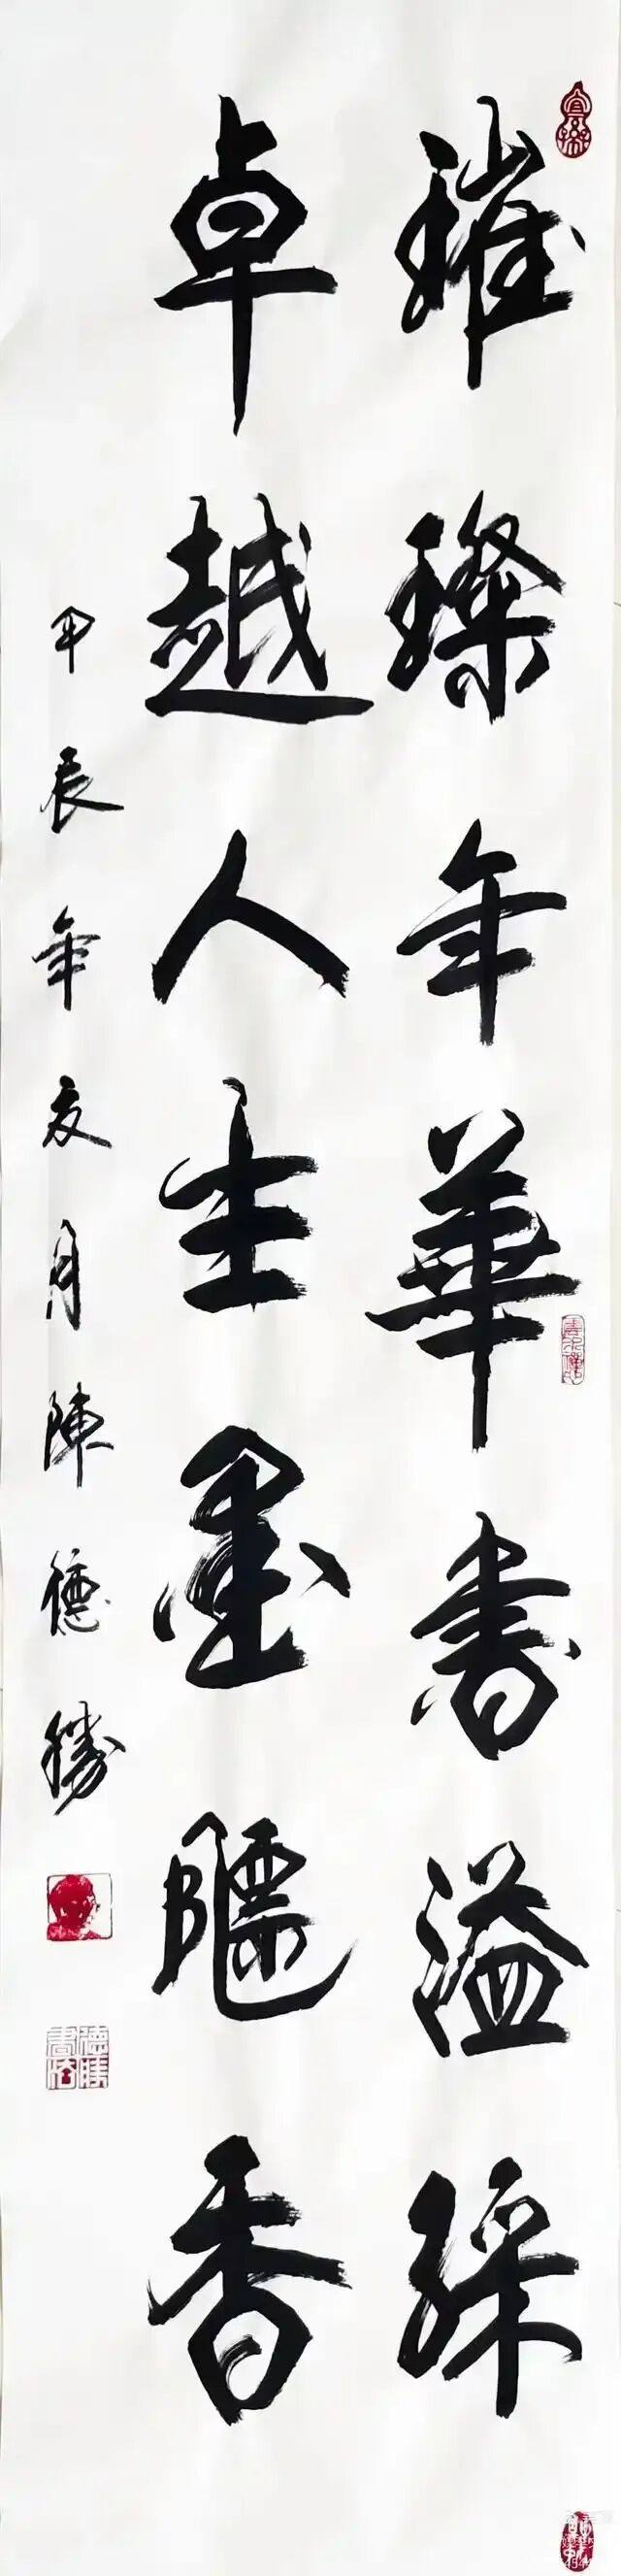 璀璨年華書溢綵
卓越人生墨飄香
甲辰年夏月陳德勝